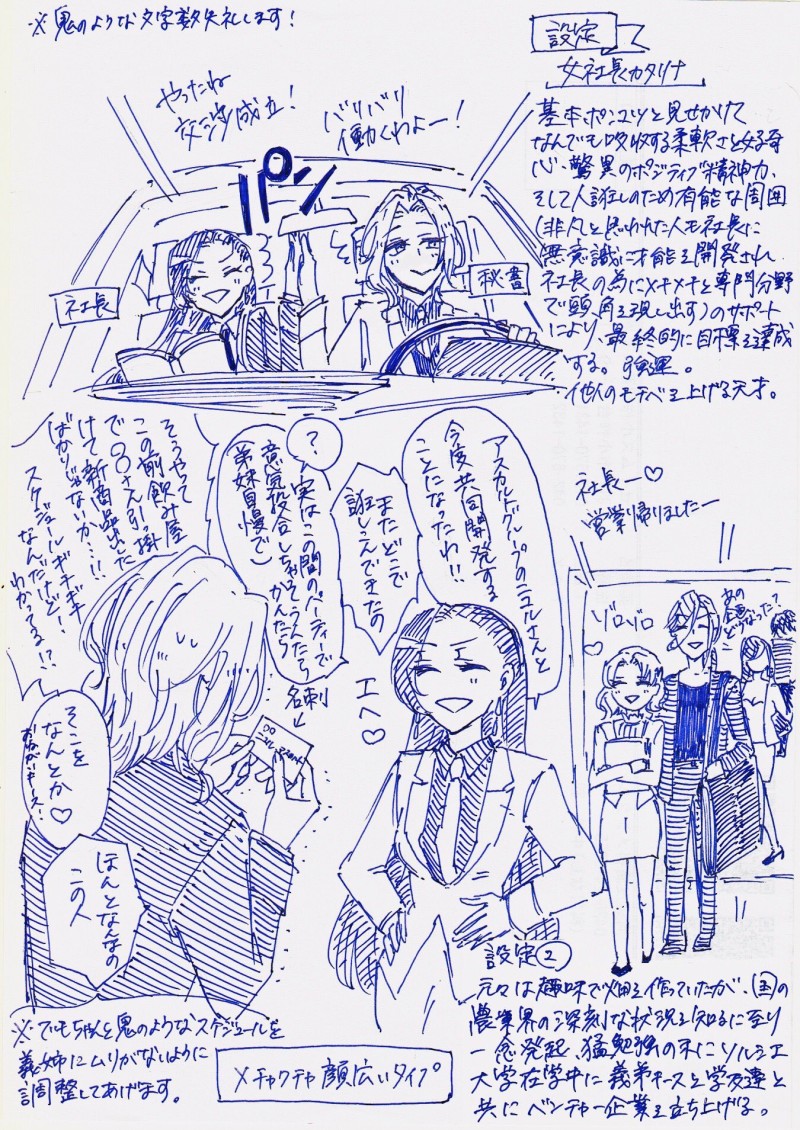 ※鬼のような文字数失礼します!
設定
女社長カタリナ
基本ポンコツと見せかけて
なんでも吸収する柔軟さと好奇
心、驚異のポジティブ精神力、
そして人誑しのため有能な周囲
(非凡と思われた人も社長に
無意識に才能を開発され
社長の為にメキメキと専門分野
で頭角を現し出す)のサポート
により、最終的に目標を達成
する。強運。
他人のモチベを上げる天才。
やったね
交渉成立!
バリバリ
働くわよー!
パン
社長
秘書
アスカルトグループのニコルさんと
今度共同開発する
ことになったわ!!
またどこで
誑しこんできたの
?
実はこの間のパーティーで
意気投合しちゃってうんたら
かんたら
(弟妹自慢で)
そうやって
この前飲み屋
で○○さん引っ掛
けて新商品出した
ばかりじゃないか…!!
スケジュールギチギチ
なんだけど!
わかってる!?
名刺
エヘ♡
そこを
なんとか♡
おねがいキース!
ほんとなんなの
この人
社長ー♡
営業帰りましたー
ゾロゾロ
あの
企画
どうなった?
※でもちゃんと鬼のようなスケジュールを
義姉にムリがないように
調整してあげます。
メチャクチャ顔広いタイプ
設定②
元々は趣味で畑を作っていたが、国の
農業界の深刻な状況を知るに至り
一念発起、猛勉強の末にソルシエ
大学在学中に義弟キースと学友達と
共にベンチャー企業を立ち上げる。